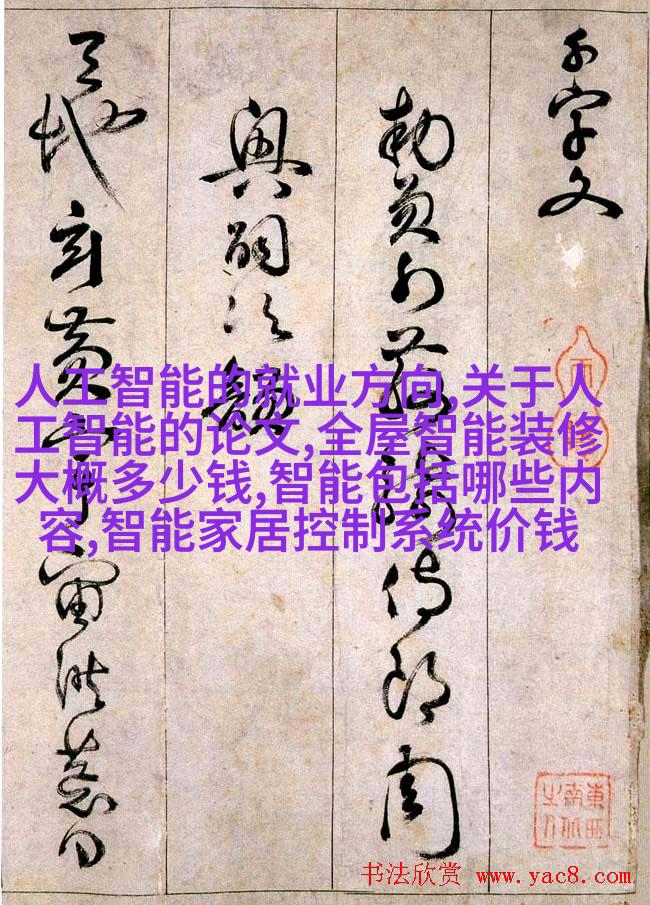 千字文
勅員外散騎侍郎周
興嗣次韻
天地玄黃宇宙洪荒日
人工智能的就业方向,关于人
工智能的论文,全屋智能装修
大概多少钱,智能包括哪些内
容,智能家居控制系统价钱
東西
南北
之人
书法欣赏 www.yac8.com